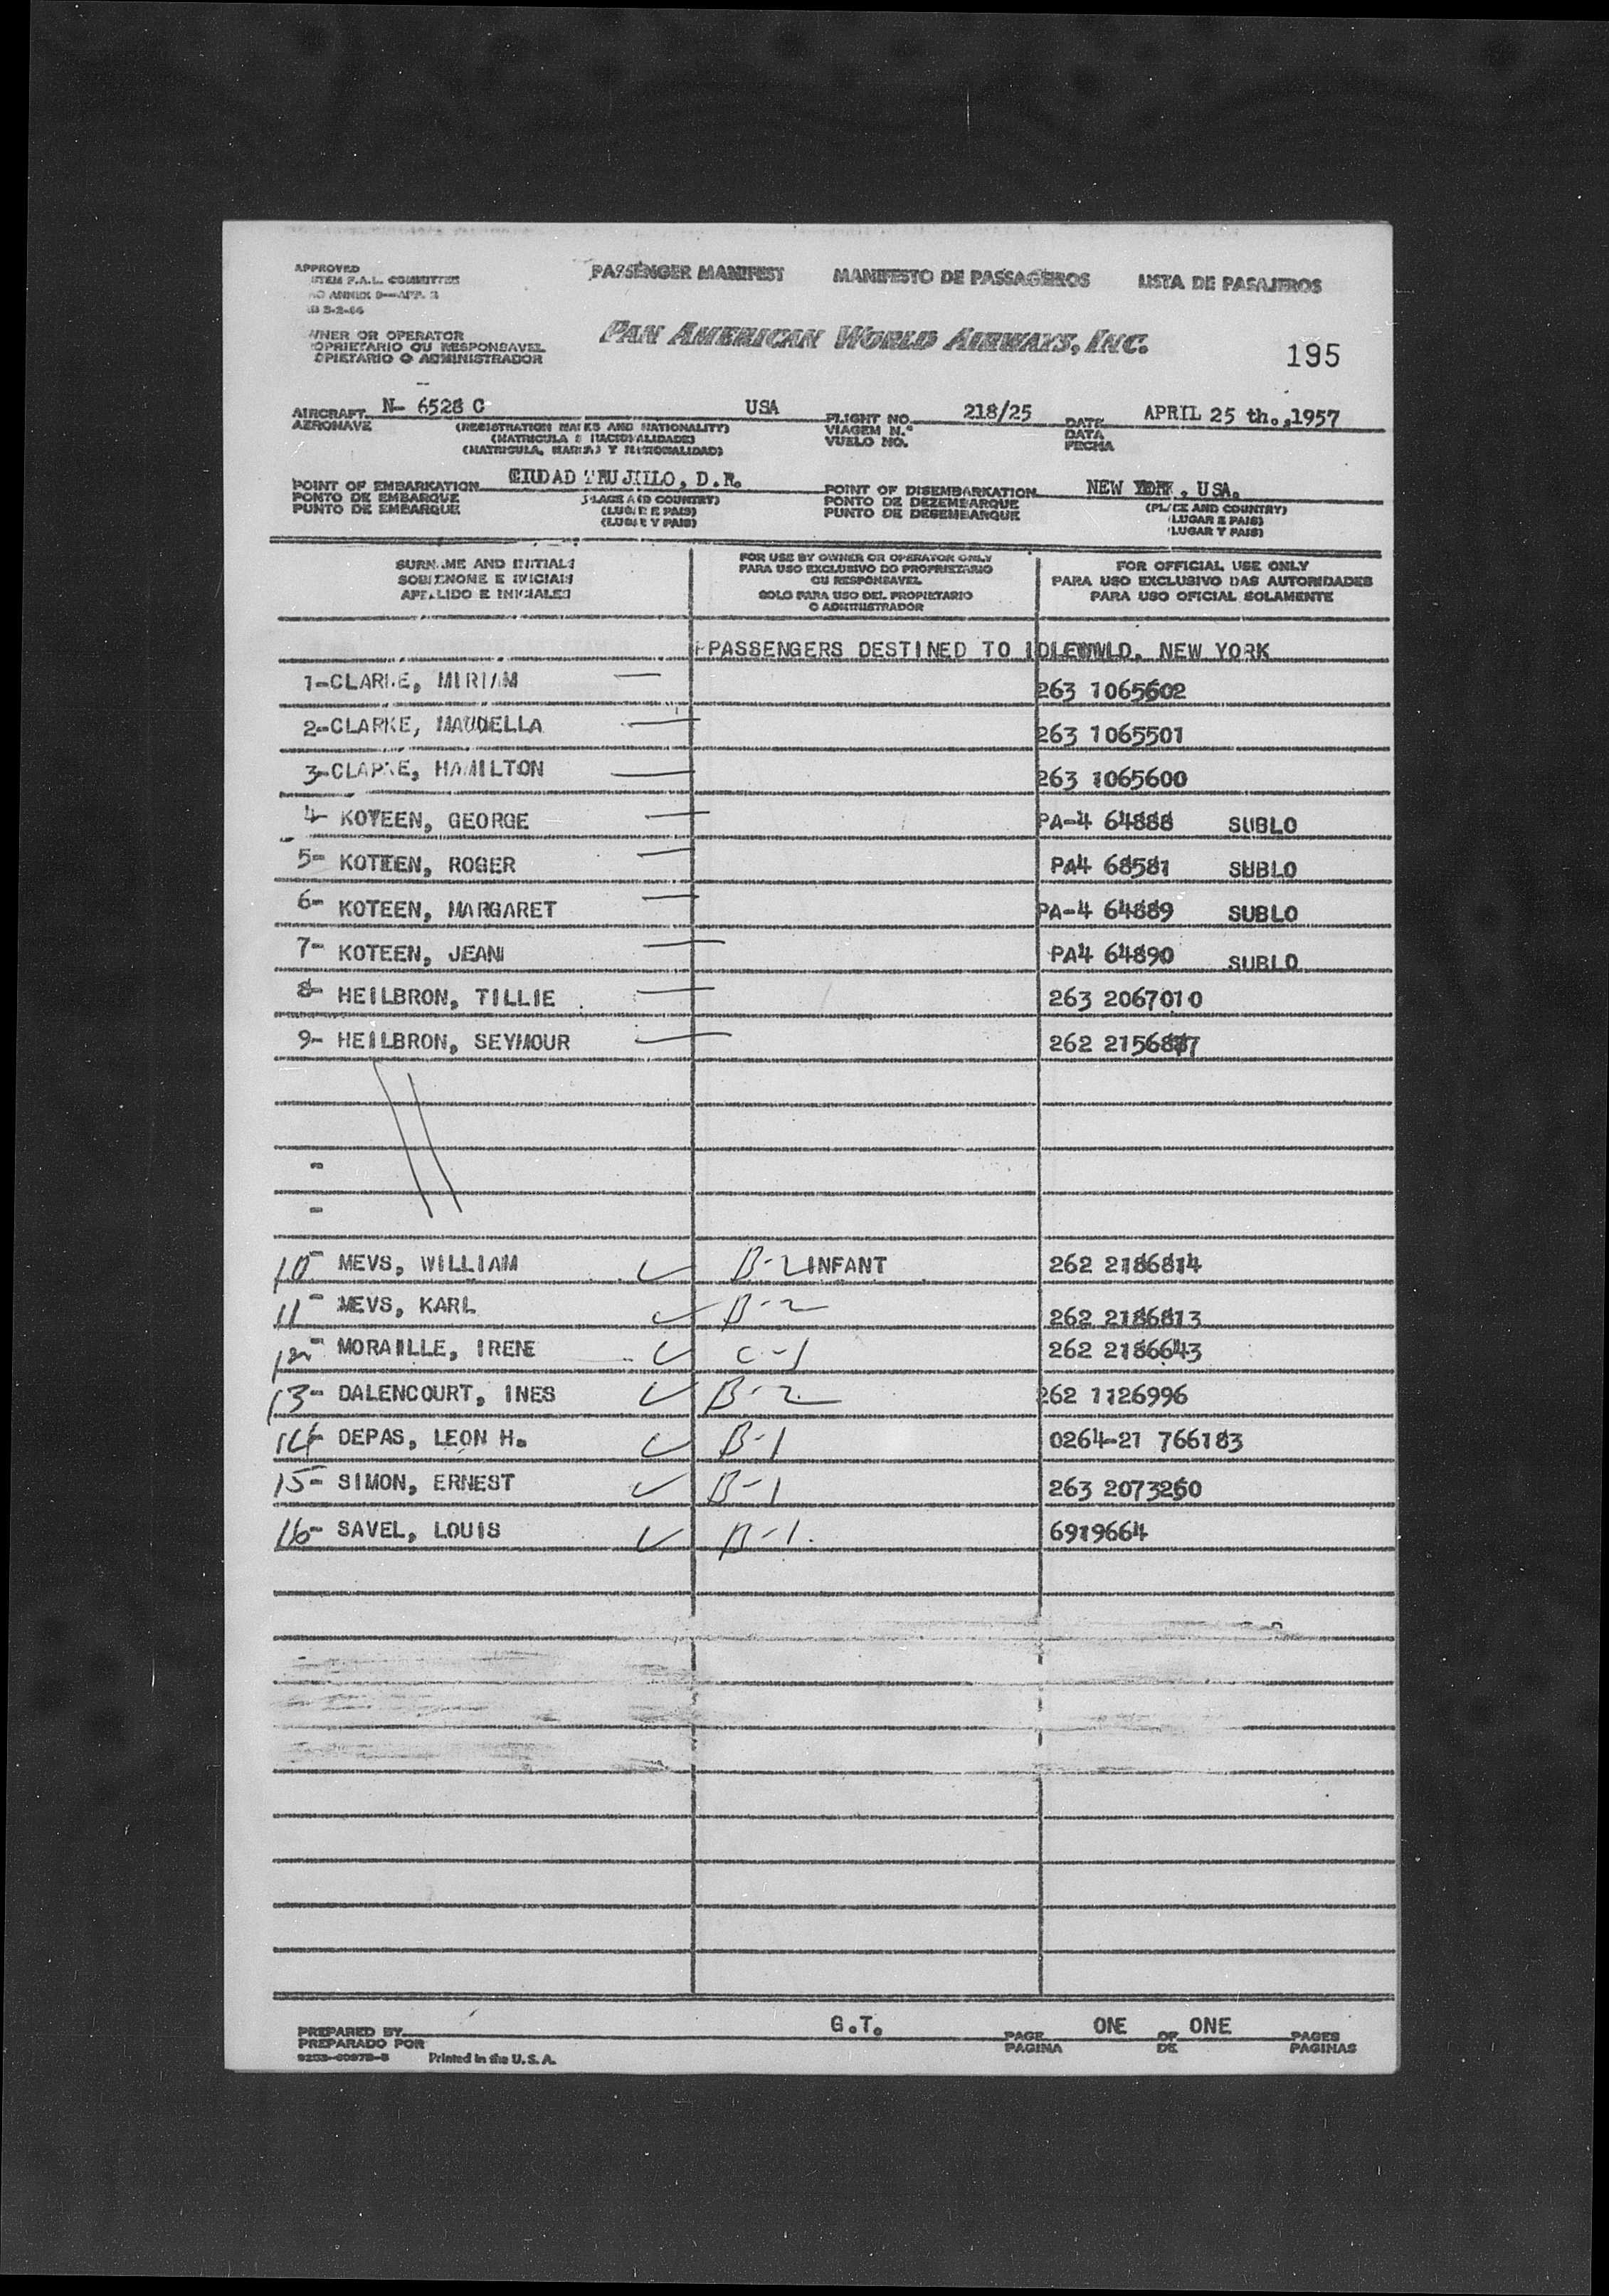 APPROVED
F.A.L. COMMITTEE
ANNEX 9—APP. 3
PASSENGER MANIFEST MANIFESTO DE PASSAGEIROS LISTA DE PASAJEROS
WNER OR OPERATOR
OPRIETARIO OU RESPONSAVEL
OPIETARIO O ADMINISTRADOR
PAN AMERICAN WORLD AIRWAYS, INC.
195
AIRCRAFT N- 6528 C USA FLIGHT NO. 218/25 DATE APRIL 25 th.,1957
AERONAVE (REGISTRATION MARKS AND NATIONALITY) VIAGEM N.º DATA
(MATRICULA E NACIONALIDADE) VUELO NO. FECHA
(MATRICULA, MARCAS Y NACIONALIDAD)
POINT OF EMBARKATION CIUDAD TRUJILLO, D.R. POINT OF DISEMBARKATION NEW YORK, USA.
PONTO DE EMBARQUE (PLACE AND COUNTRY) PONTO DE DEZEMBARQUE (PLACE AND COUNTRY)
PUNTO DE EMBARQUE (LUGAR E PAIS) PUNTO DE DESEMBARQUE (LUGAR E PAIS)
(LUGAR Y PAIS) (LUGAR Y PAIS)
SURNAME AND INITIALS
SOBRENOME E INICIAIS
APELLIDO E INICIALES
FOR USE BY OWNER OR OPERATOR ONLY
PARA USO EXCLUSIVO DO PROPRIETARIO
OU RESPONSAVEL
SOLO PARA USO DEL PROPIETARIO
O ADMINISTRADOR
FOR OFFICIAL USE ONLY
PARA USO EXCLUSIVO DAS AUTORIDADES
PARA USO OFICIAL SOLAMENTE
PASSENGERS DESTINED TO IDLEWWLD, NEW YORK
1-CLARKE, MIRIAM 263 1065602
2-CLARKE, MAUDELLA 263 1065501
3-CLARKE, HAMILTON 263 1065600
4- KOTEEN, GEORGE PA-4 64888 SUBLO
5- KOTEEN, ROGER PA4 68581 SUBLO
6- KOTEEN, MARGARET PA-4 64889 SUBLO
7- KOTEEN, JEAN PA4 64890 SUBLO
8- HEILBRON, TILLIE 263 2067010
9- HEILBRON, SEYMOUR 262 2156887
-
-
10- MEVS, WILLIAM ✓ B-2 INFANT 262 2186814
11- MEVS, KARL ✓ B-2 262 2186813
12- MORAILLE, IRENE ✓ C-1 262 2186643
13- DALENCOURT, INES ✓ B-2 262 1126996
14- DEPAS, LEON H. ✓ B-1 0264-21 766183
15- SIMON, ERNEST ✓ B-1 263 2073260
16- SAVEL, LOUIS ✓ B-1 6919664
PREPARED BY G.T. PAGE ONE OF ONE PAGES
PREPARADO POR PAGINA DE PAGINAS
Printed in the U.S.A.